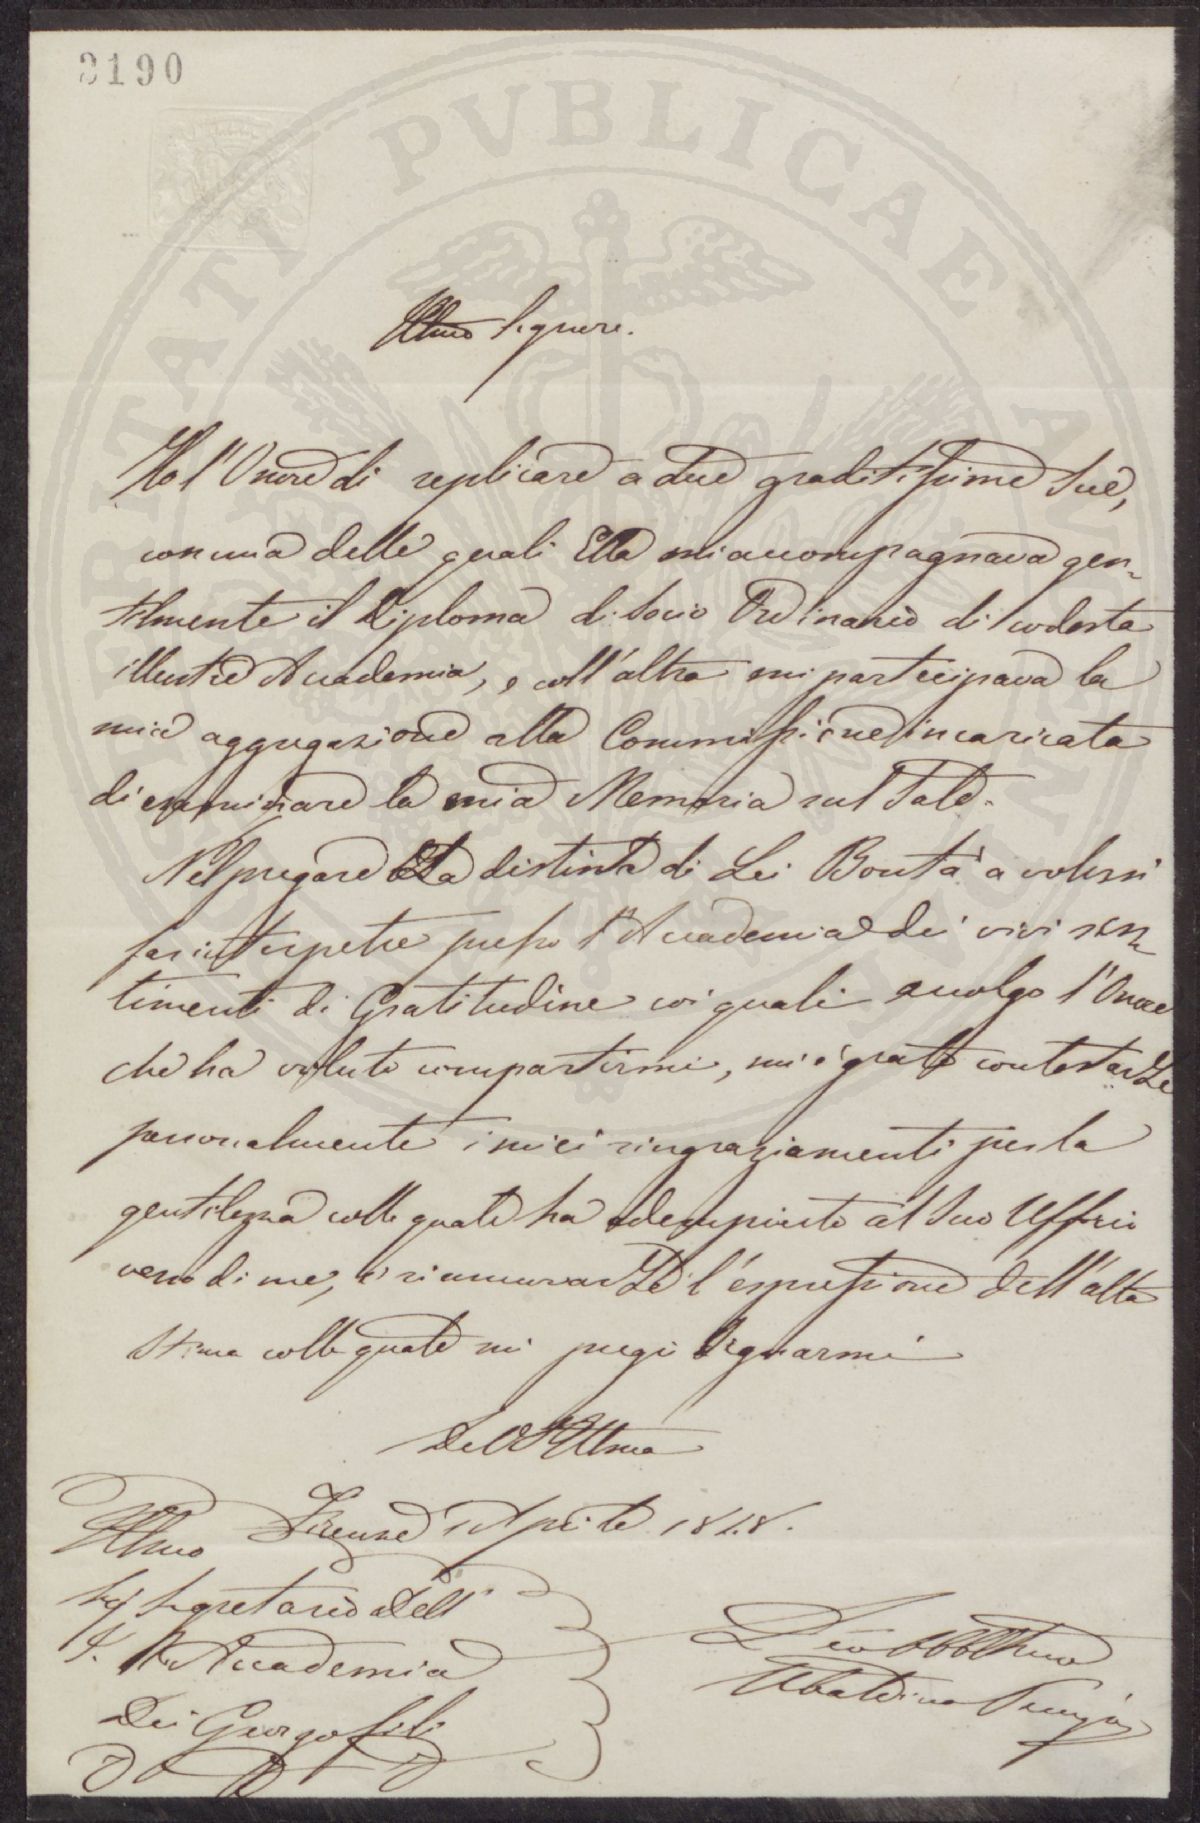 3190
PVBLICAE
Illmo Signore.
Ho l'Onore di replicare a due graditissime Sue,
con una delle quali Ella mi accompagnava gen-
tilmente il Diploma di Socio Ordinario di codesta
illustre Accademia, e coll'altra mi partecipava la
mia aggregazione alla Commissione incaricata
di esaminare la mia Memoria sul Sale.
Nel pregare la distinta di Lei Bontà a volersi
far interpetre presso l'Accademia dei vivi sen-
timenti di Gratitudine coi quali accolgo l'Onore
che ha voluto compartirmi, mi è grato contestarLe
personalmente i miei ringraziamenti per la
gentilezza colla quale ha adempiuto al Suo Uffizio
verso di me, e rinnuovarLe l'espressione dell'alta
stima colla quale mi pregio segnarmi
Di VS Illma
Firenze Aprile 1828.
Illmo
Sig Segretario dell'
I. R. Accademia
Dei Georgofili
Ubaldino